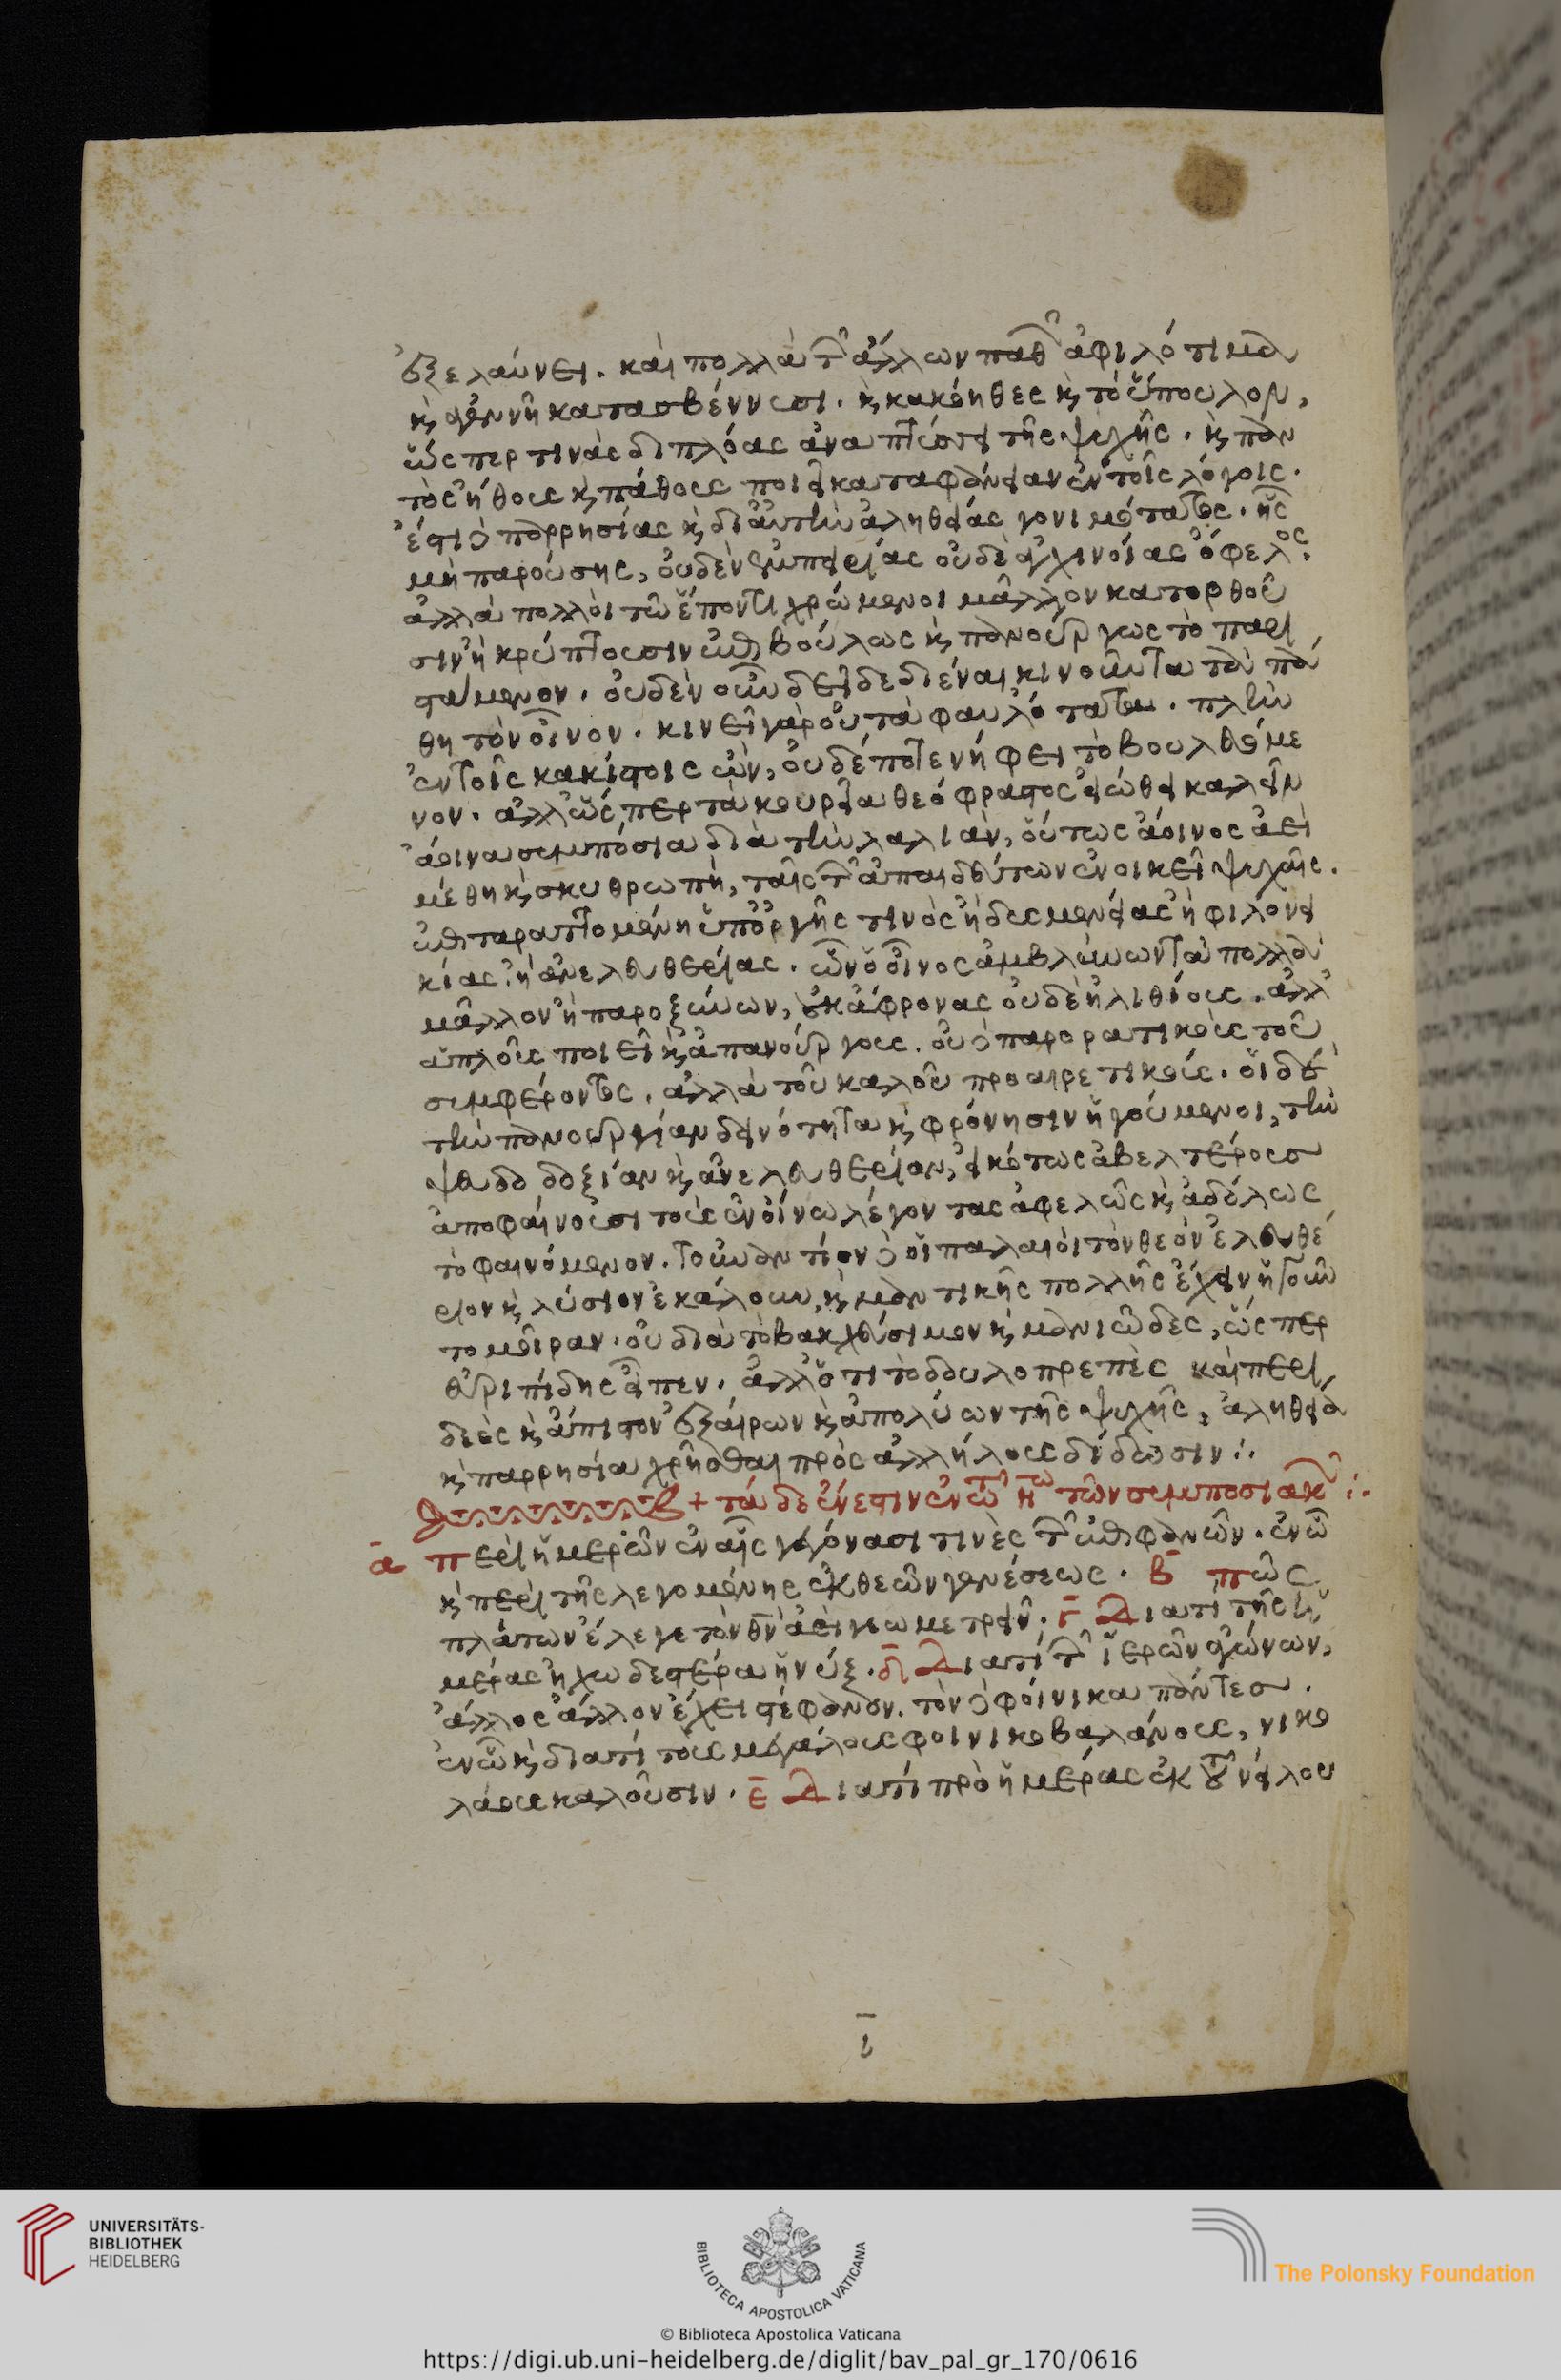 ἐξελαύνει. καὶ πολλὰ τῶν ἄλλων παθῶν ἀφιλότιμα
κ ἀγεννῆ κατασβέννυσι. κ κακόηθες κ τὸ ὕπουλον,
ὥσπερ τινὰς διπλόας ἀναπτύσσει τῆς ψυχῆς. κ παν
τὸς ἤθους κ πάθους ποιεῖ καταφάνειαν ἐν τοῖς λόγοις.
ἔστι δὲ παρρησίας κ δι' αὐτὴν ἀληθείας γονιμώτατος. ἧς
μὴ παρούσης, οὐδὲν ἐμπειρίας οὐδὲ ἀγχινοίας ὄφελος.
ἀλλὰ πολλοὶ τῷ ἐπιόντι χρώμενοι μᾶλλον κατορθοῦ
σιν ἢ κρύπτουσιν ἐπιβούλως κ πανούργως τὸ παρι
στάμενον. οὐδὲν οὖν δεῖ δεδιέναι κινοῦντα τὰ πά
θη τὸν οἶνον. κινεῖ γὰρ οὐ τὰ φαυλότατα. πλὴν
ἐν τοῖς κακίστοις ὧν, οὐδέποτε νήφει τὸ βουλευόμε
νον. ἀλλ' ὥσπερ τὰ κουρεῖα θεόφραστος εἰώθει καλεῖν
ἄοινα συμπόσια διὰ τὴν λαλιὰν, οὕτως ἄοινος ἀεὶ
μέθη κ σκυθρωπὴ, ταῖς τῶν ἀπαιδεύτων ἐνοικεῖ ψυχαῖς.
ἐπιταραττομένη ὑπ' ὀργῆς τινὸς ἢ δυσμενείας ἢ φιλονει
κίας ἢ ἀνελευθερίας. ὧν ὁ οἶνος ἀμβλύνων τὰ πολλὰ
μᾶλλον ἢ παροξύνων, οὐκ ἄφρονας οὐδὲ ἠλιθίους. ἀλλ'
ἁπλοῦς ποιεῖ κ ἀπανούργους. οὐ δὲ παρορατικοὺς τοῦ
συμφέροντος. ἀλλὰ τοῦ καλοῦ προαιρετικούς. οἱ δὲ
τὴν πανουργίαν δεινότητα κ φρόνησιν ἡγούμενοι, τὴν
ψευδοδοξίαν κ ἀνελευθερίαν, εἰκότως ἀβελτέρους
ἀποφαίνουσι τοὺς ἐν οἴνῳ λέγοντας ἀφελῶς κ ἀδόλως
τὸ φαινόμενον. τοὐναντίον δὲ οἱ παλαιοὶ τὸν θεὸν ἐλευθέ
ριον κ λύσιον ἐκάλουν, κ μαντικῆς πολλῆς ἔχειν ἡγοῦν
το μοῖραν. οὐ διὰ τὸ βακχεύσιμον κ μανιῶδες, ὥσπερ
εὐριπίδης εἶπεν. ἀλλ' ὅτι τὸ δουλοπρεπὲς καὶ περι
δεὲς κ ἄπιστον ἐξαίρων κ ἀπολύων τῆς ψυχῆς, ἀληθείᾳ
κ παρρησίᾳ χρῆσθαι πρὸς ἀλλήλους δίδωσιν :·
+ τάδε ἔνεστιν ἐν τῷ ητω τῶν συμποσιακῶν :·
ᾱ περὶ ἡμερῶν ἐν αἷς γεγόνασι τινὲς τῶν ἐπιφανῶν. ἐν ᾧ
κ περὶ τῆς λεγομένης ἐκ θεῶν γενέσεως. β̄ πῶς
πλάτων ἔλεγε τὸν θν ἀεὶ γεωμετρεῖν. γ̄ Διατί τῆς ἡ
μέρας ἠχωδεστέρα ἡ νύξ. δ̄ Διατί τῶν ἱερῶν ἀγώνων,
ἄλλος ἄλλον ἔχει στέφανον. τὸν δὲ φοίνικα πάντες.
ἐν ᾧ κ διατί τοὺς μεγάλους φοινικοβαλάνους, νικο
λάους καλοῦσιν. ε̄ Διατί πρὸ ἡμέρας ἐκ τοῦ νείλου
ῑ
UNIVERSITÄTS-
BIBLIOTHEK
HEIDELBERG
BIBLIOTECA APOSTOLICA VATICANA
The Polonsky Foundation
© Biblioteca Apostolica Vaticana
https://digi.ub.uni-heidelberg.de/diglit/bav_pal_gr_170/0616